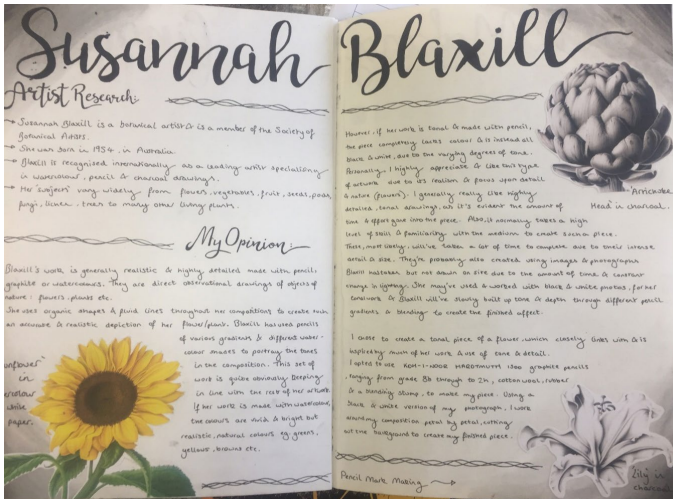 Susannah Blaxill
Artist Research:
→ Susannah Blaxill is a botanical artist & is a member of the Society of
Botanical Artists.
→ She was born in 1954, in Australia.
→ Blaxill is recognised internationally as a leading artist specialising
in watercolour, pencil & charcoal drawings.
→ Her 'subjects' vary widely from flowers, vegetables, fruit, seeds, pods,
fungi, lichen, trees to many other living plants.
My Opinion:
Blaxill's work is generally realistic & highly detailed made with pencil,
graphite or watercolours. They are direct observational drawings of objects of
nature: flowers, plants etc.
She uses organic shapes & fluid lines throughout her compositions to create such
an accurate & realistic depiction of her flower/plant. Blaxill has used pencils
of various gradients & different water-
colour mades to portray the tones
in the composition. This set of
work is quite obviously keeping
in line with the rest of her artwork.
If her work is made with watercolour,
the colours are vivid & bright but
realistic, natural colours eg. greens,
yellows, browns etc.
unflower'
in
ercolour
while
paper.
However, if her work is tonal & made with pencil,
the piece completely lacks colour & is instead all
black & white, due to the varying degrees of tone.
Personally, I highly appreciate & like this type
of artwork due to its realism & focus upon detail
& nature (flowers). I generally really like highly
detailed, tonal drawings, as it's evident the amount of
time & effort gave into the piece. Also, it normally takes a high
level of skill & familiarity with the medium to create such a piece.
These, most likely, will've taken a lot of time to complete due to their intense
detail & size. They're probably also created using images & photographs
Blaxill has taken but not drawn on site due to the amount of time & constant
change in lighting. She may've used & worked with black & white photos, for her
tonal work & Blaxill will've slowly built up tone & depth through different pencil
gradients & blending to create the finished effect.
'Artichoke
Head' in charcoal.
I chose to create a tonal piece of a flower, which closely links with & is
inspired by much of her work & use of tone & detail.
I opted to use KOH-I-NOOR HARDTMUTH 1500 graphite pencils
, ranging from grade 8b through to 2h, cotton wool, rubber
& a blending stump, to make my piece. Using a
black & white version of my photograph, I work
around my composition petal by petal, cutting
out the background to create my finished piece.
Pencil Mark Making →
'Lily' in
charcoal